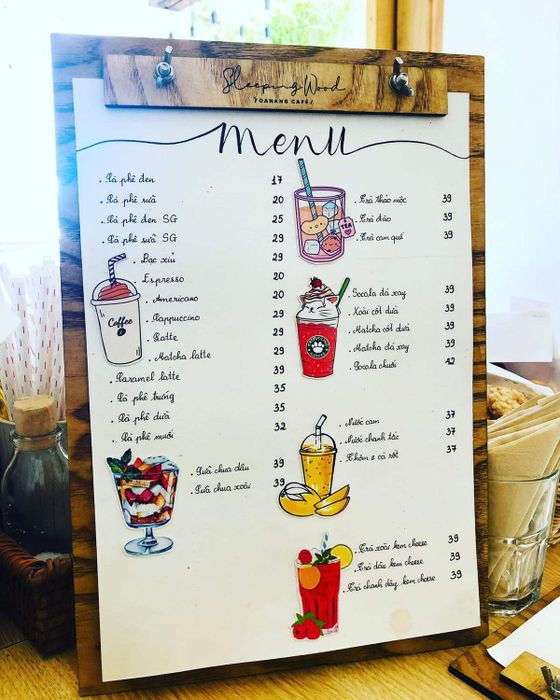 Sleeping Wood
/ DANANG CAFÉ /
Menu
. Cà phê đen 17
. Cà phê sữa 20
. Cà phê đen SG 25
. Cà phê sữa SG 29
. Bạc xỉu 29
. Espresso 20
. Americano 20
. Cappuccino 29
. Latte 29
. Matcha latte 29
. Caramel latte 39
. Cà phê trứng 35
. Cà phê dừa 35
. Cà phê muối 32
Coffee
. Sữa chua dâu 39
. Sữa chua xoài 39
TEA
. Trà thảo mộc 39
. Trà đào 39
. Trà cam quế 39
. Socola đá xay 39
. Xoài cốt dừa 39
. Matcha cốt dừa 39
. Matcha đá xay 39
. Socola chuối 42
. Nước cam 37
. Nước chanh tắc 37
. Thơm & cà rốt 37
. Trà xoài kem cheese 39
. Trà dâu kem cheese 39
. Trà chanh dây kem cheese 39